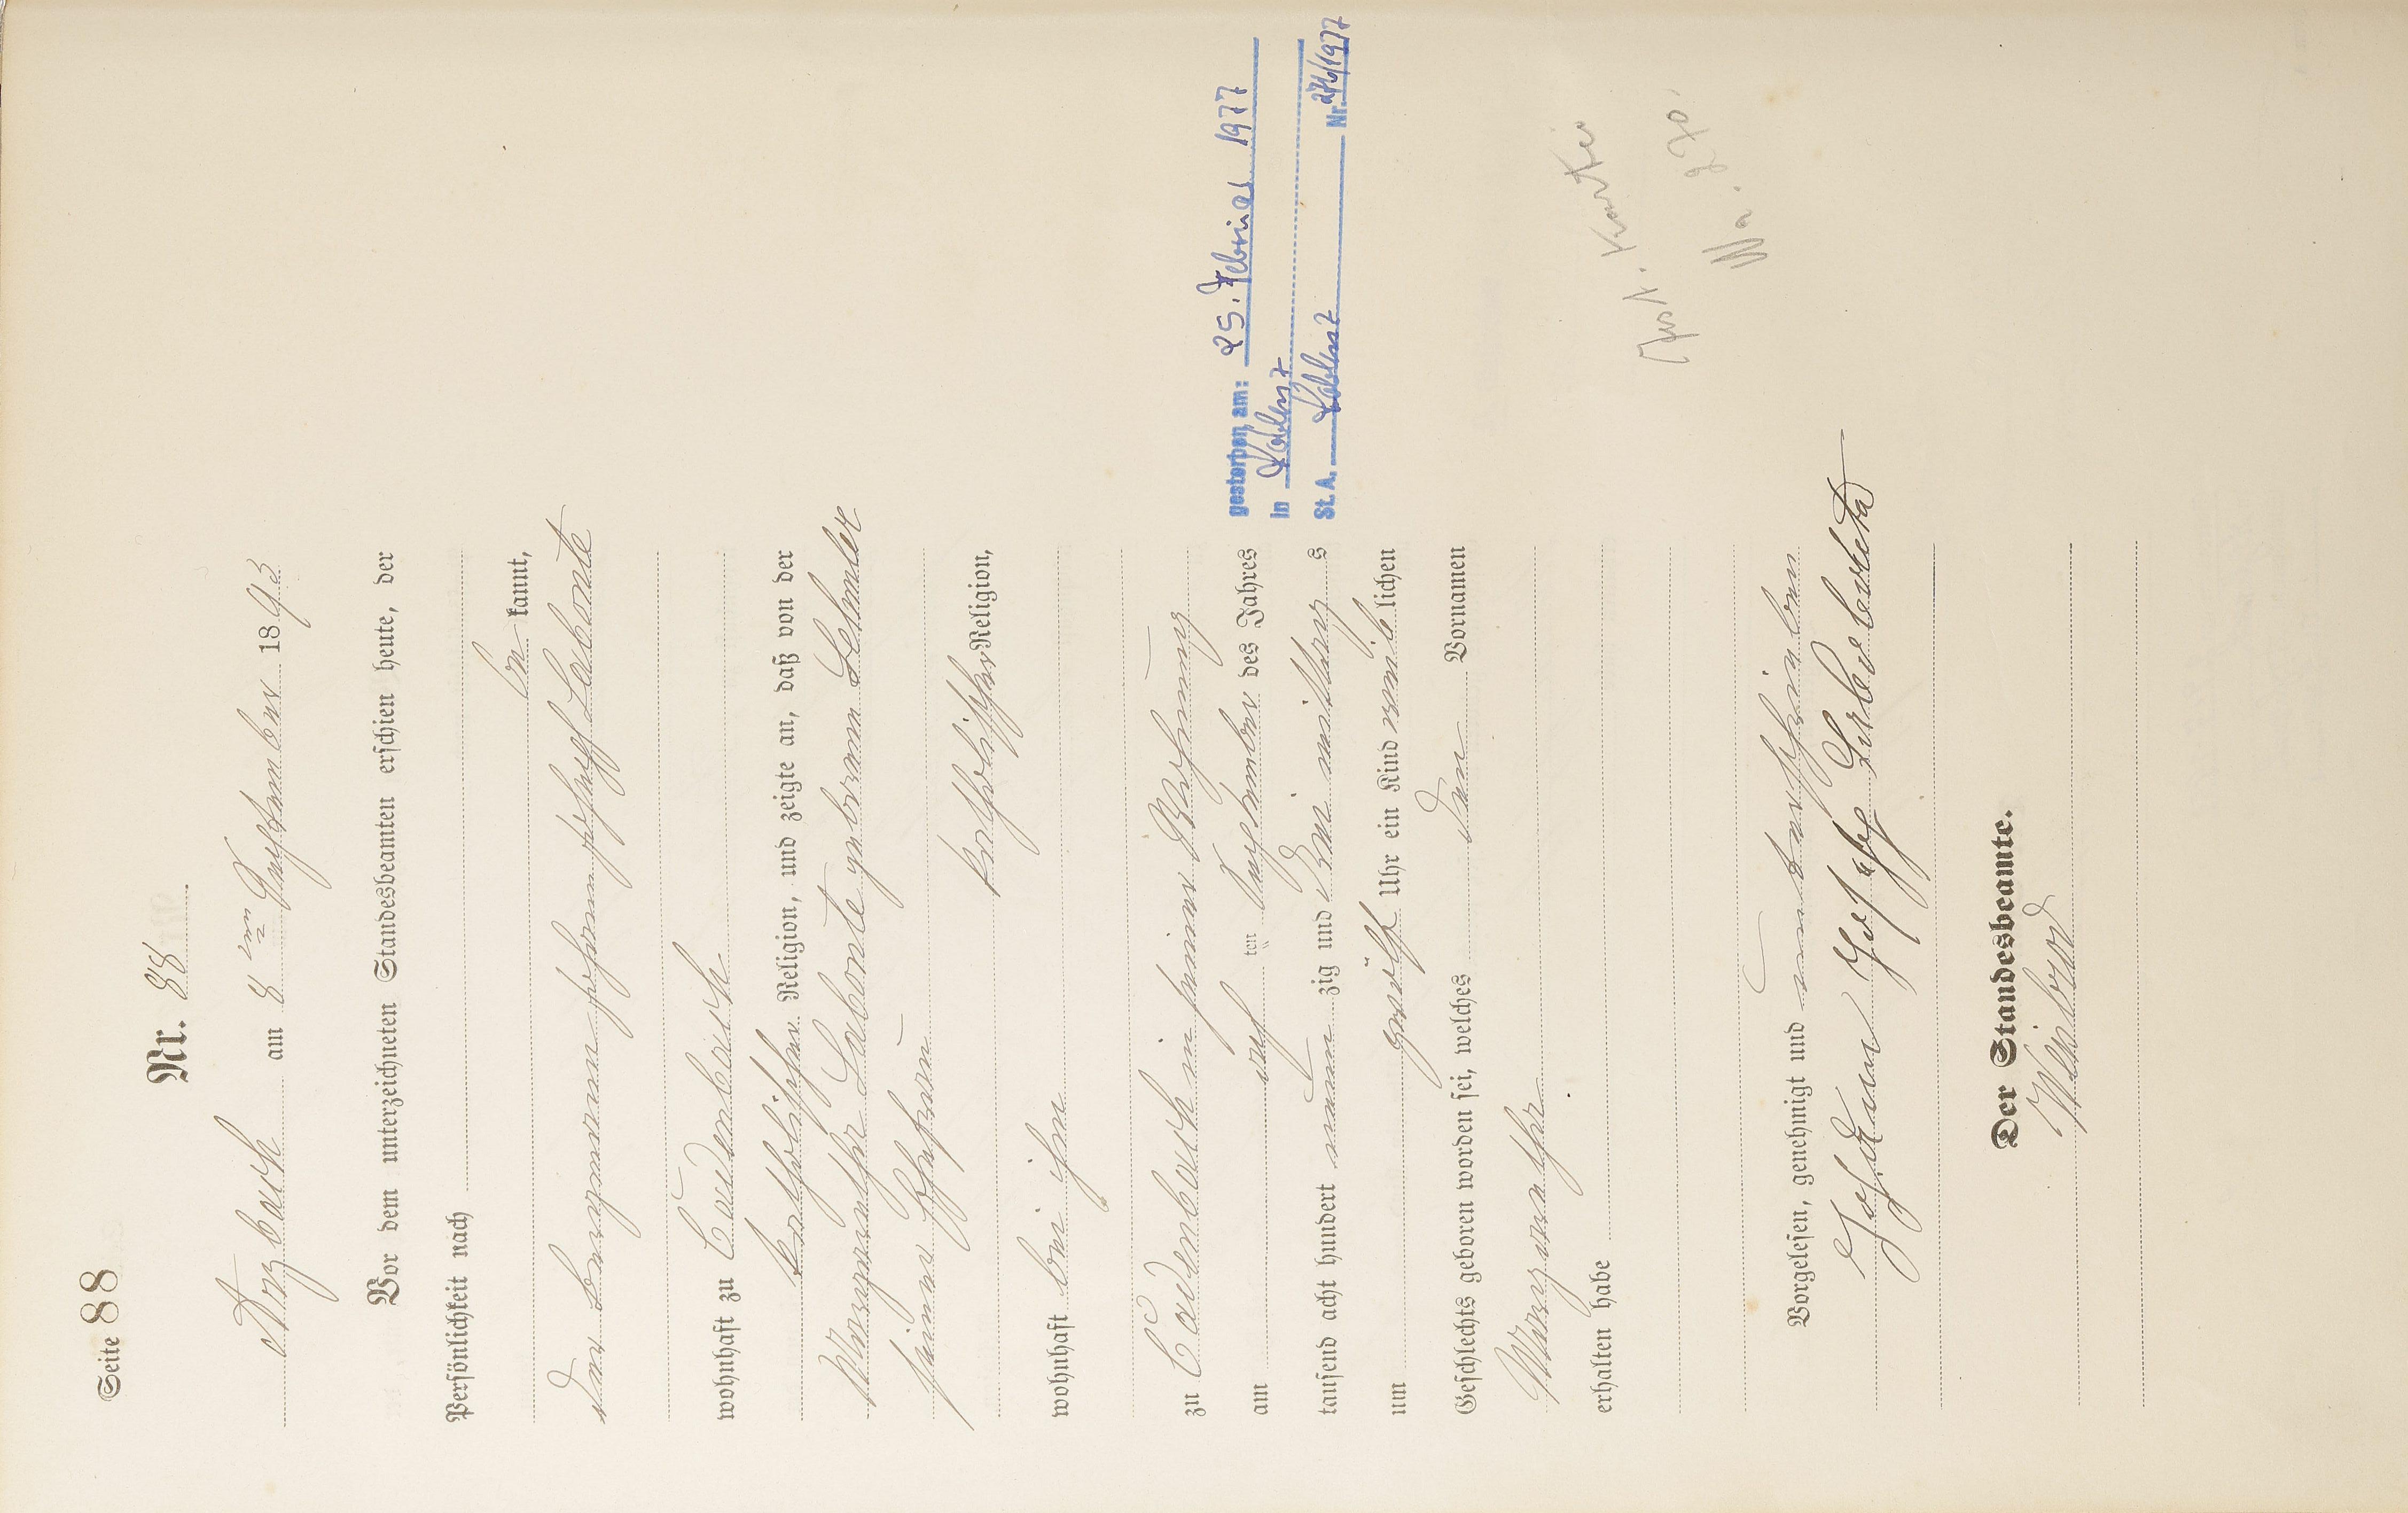 Seite 88
Nr. 88
Arzbach am 8ten September 1893
Vor dem unterzeichneten Standesbeamten erschien heute, der
Persönlichkeit nach
be kannt,
der Bergmann Johann Joseph Labonte
wohnhaft zu Cadenbach
katholischer Religion, und zeigte an, daß von der
Margarethe Labonte geborenen Lehmler
seiner Ehefrau
katholischer Religion,
wohnhaft bei ihm
zu Cadenbach in seiner Wohnung
am ten September des Jahres
tausend acht hundert neun zig und drei mittags
um zwölf Uhr ein Kind weib lichen
Geschlechts geboren worden sei, welches den Vornamen
Margarethe
erhalten habe
Vorgelesen, genehmigt und unterschrieben
Johann Joseph
Der Standesbeamte.
gestorben am: 25. Februar 1977
in Koblenz
St. A. Koblenz Nr. 276/1977
Kartei